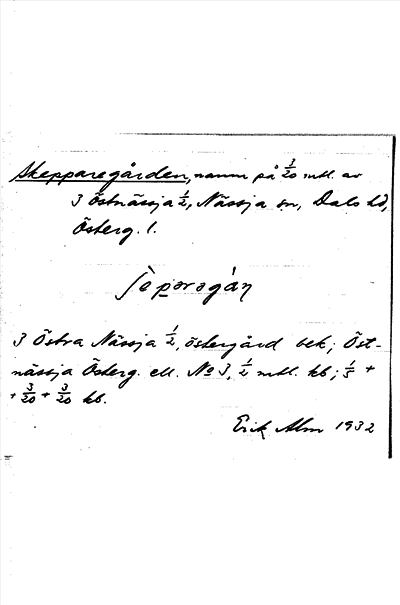 Skepparegården, namn på 3/20 mtl. av
3 Östnässja 1/2, Nässja sn, Dals hd,
Österg. l.
3 Östra Nässja 1/2, östergård bek; Öst-
nässja Österg. ell. No 3, 1/2 mtl. kb; 1/5 +
+ 3/20 + 3/20 kb.
Erik Alm 1932